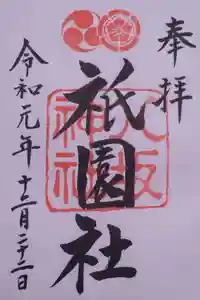 奉拝
祇園社
八坂神社
令和元年十二月二十二日